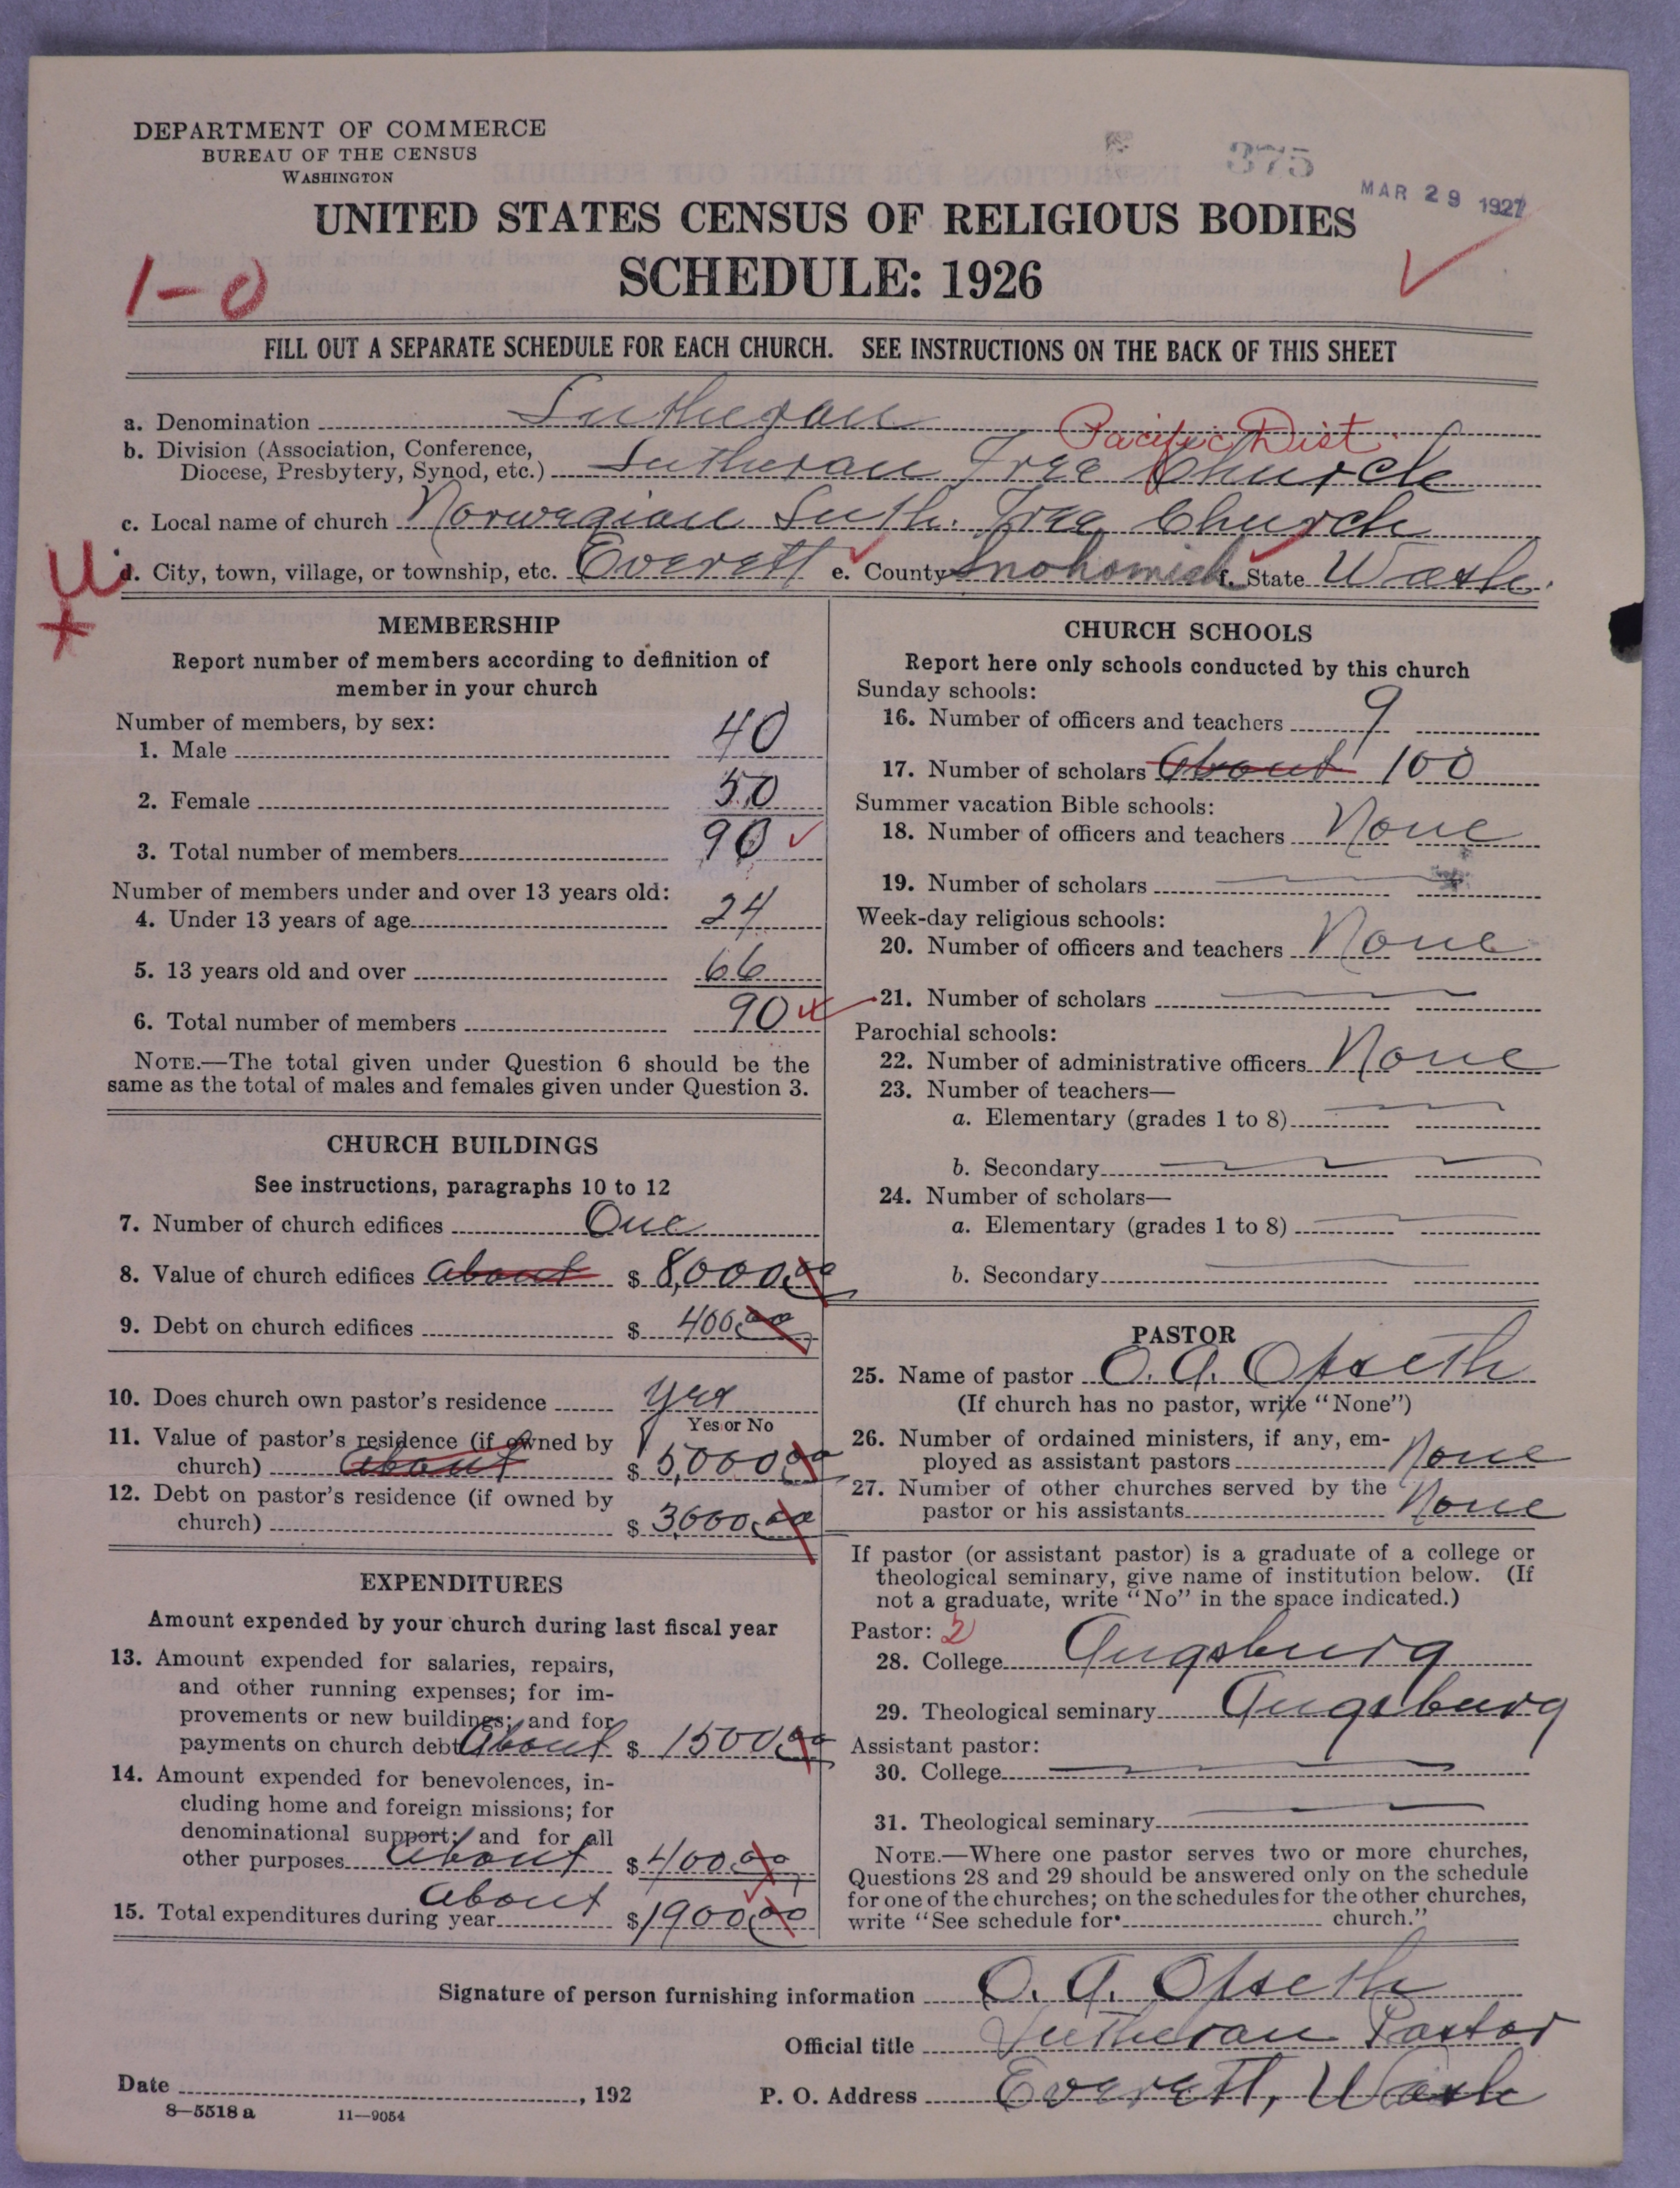 DEPARTMENT OF COMMERCE
BUREAU OF THE CENSUS
WASHINGTON
375
MAR 29 1927
UNITED STATES CENSUS OF RELIGIOUS BODIES
SCHEDULE: 1926
1-0
FILL OUT A SEPARATE SCHEDULE FOR EACH CHURCH. SEE INSTRUCTIONS ON THE BACK OF THIS SHEET
a. Denomination Lutheran
Pacific Dist.
b. Division (Association, Conference,
Diocese, Presbytery, Synod, etc.) Lutheran Free Church
c. Local name of church Norwegian Luth. Free Church
d. City, town, village, or township, etc. Everett e. County Snohomish f. State Wash.
U
MEMBERSHIP
Report number of members according to definition of
member in your church
Number of members, by sex:
1. Male 40
2. Female 50
3. Total number of members 90
Number of members under and over 13 years old:
4. Under 13 years of age 24
5. 13 years old and over 66
6. Total number of members 90
NOTE.—The total given under Question 6 should be the
same as the total of males and females given under Question 3.
CHURCH BUILDINGS
See instructions, paragraphs 10 to 12
7. Number of church edifices One
8. Value of church edifices about $ 8,000.00
9. Debt on church edifices $ 400.00
10. Does church own pastor's residence yes
Yes or No
11. Value of pastor's residence (if owned by
church) about $ 5,000.00
12. Debt on pastor's residence (if owned by
church) $ 3000.00
EXPENDITURES
Amount expended by your church during last fiscal year
13. Amount expended for salaries, repairs,
and other running expenses; for im-
provements or new buildings; and for
payments on church debt About $ 1500.00
14. Amount expended for benevolences, in-
cluding home and foreign missions; for
denominational support; and for all
other purposes About $ 400.00
about
15. Total expenditures during year $ 1900.00
CHURCH SCHOOLS
Report here only schools conducted by this church
Sunday schools:
16. Number of officers and teachers 9
17. Number of scholars About 100
Summer vacation Bible schools:
18. Number of officers and teachers None
19. Number of scholars
Week-day religious schools:
20. Number of officers and teachers None
21. Number of scholars
Parochial schools:
22. Number of administrative officers None
23. Number of teachers—
a. Elementary (grades 1 to 8)
b. Secondary
24. Number of scholars—
a. Elementary (grades 1 to 8)
b. Secondary
PASTOR
25. Name of pastor O. A. Ofseth
(If church has no pastor, write "None")
26. Number of ordained ministers, if any, em-
ployed as assistant pastors None
27. Number of other churches served by the
pastor or his assistants None
If pastor (or assistant pastor) is a graduate of a college or
theological seminary, give name of institution below. (If
not a graduate, write "No" in the space indicated.)
Pastor: 2
28. College Augsburg
29. Theological seminary Augsburg
Assistant pastor:
30. College
31. Theological seminary
NOTE.—Where one pastor serves two or more churches,
Questions 28 and 29 should be answered only on the schedule
for one of the churches; on the schedules for the other churches,
write "See schedule for church."
Signature of person furnishing information O. A. Ofseth
Official title Lutheran Pastor
Date , 192 P. O. Address Everett, Wash
8—5518 a 11—9054